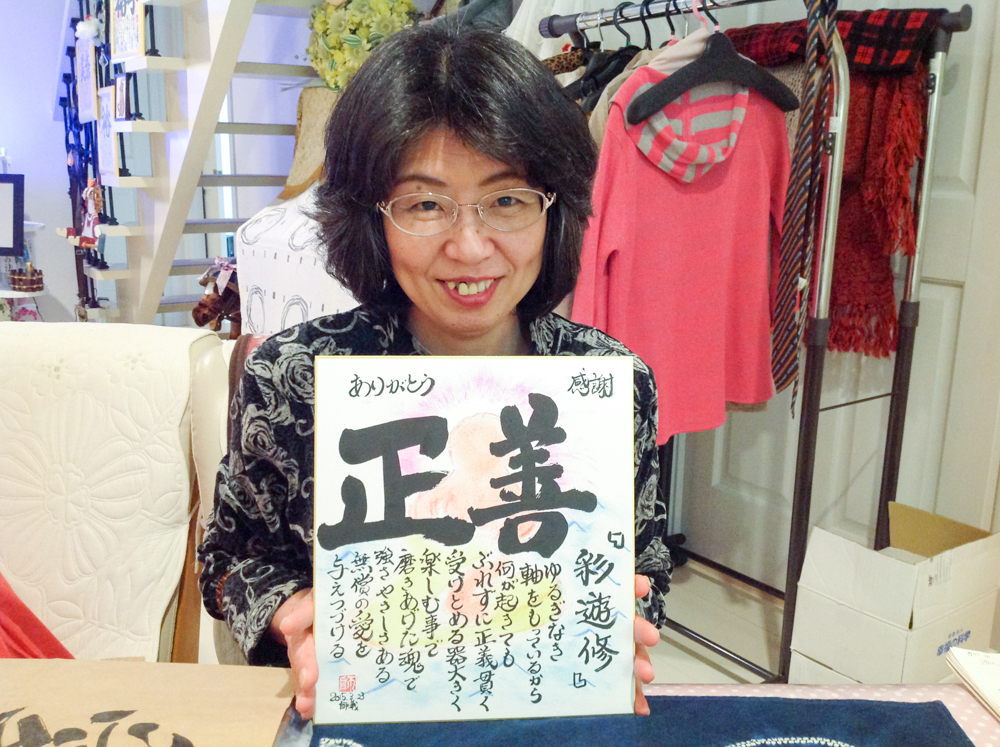 感謝
ありがとう
善正
「彩遊修」
ゆるぎなき
軸をもっているから
何が起きても
ぶれずに正義貫く
受けとめる器大きく
楽しむ事で
磨きあげた魂で
強さやさしさある
無償の愛を
与えつづける